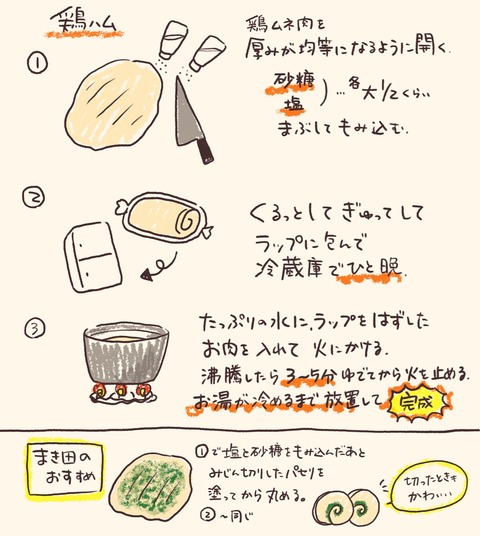 鶏ハム
①
鶏ムネ肉を
厚みが均等になるように開く.
砂糖
塩
)…各大1/2くらい
まぶしてもみ込む.
②
くるっとして ぎゅってして
ラップに包んで
冷蔵庫でひと晩.
③
たっぷりの水に、ラップをはずした
お肉を入れて 火にかける.
沸騰したら3〜5分ゆでてから火を止める.
お湯が冷めるまで放置して
完成
まき田の
おすすめ
①で塩と砂糖をもみ込んだあと
みじん切りしたパセリを
塗ってから丸める。
②〜同じ
切ったときも
かわいい…